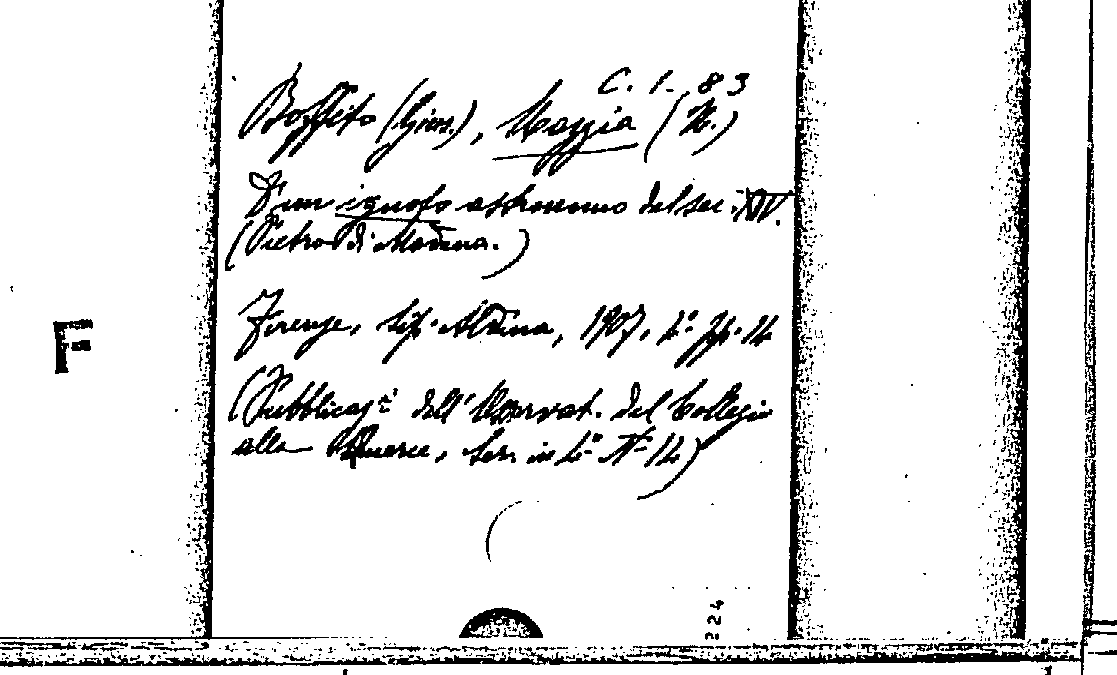 C. 1. 83
Boffito (Gius.), Mazzia (N.)
D'un ignoto astronomo del sec. XIV.
(Pietro di Modena.)
Firenze, tip. Aldina, 1907, 4° pp. 14
(Pubblicazi dell'Osservat. del Collegio
alla Querce, Ser. in 4° N° 14)
F
224